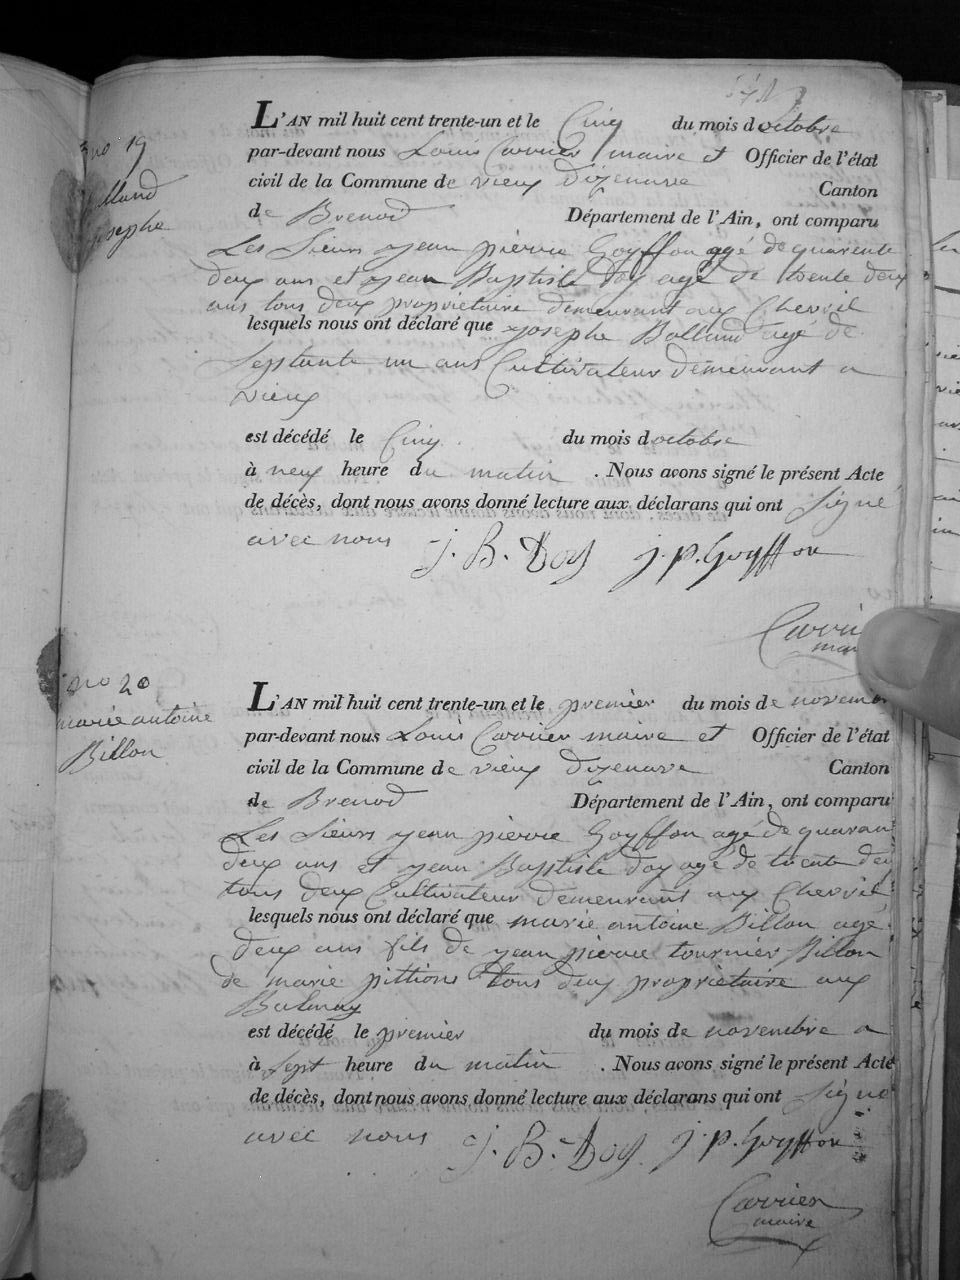 no 19
Balland
Josephe
L'AN mil huit cent trente-un et le Cinq du mois d octobre
par-devant nous Louis Carrier maire et Officier de l'état
civil de la Commune de vieux dizenave Canton
de Brenod Département de l'Ain, ont comparu
Les Sieurs yean pierre Goyffon agé de quarente
deux ans et yean Baptiste doy agé de trente deux
ans tous deux proprietaire demeurant aux Chevril
lesquels nous ont déclaré que yosephe Balland agé de
Septante un ans Cultivateur demeurant a
vieux
est décédé le Cinq du mois d octobre
à neuf heure du matin . Nous avons signé le présent Acte
de décès, dont nous avons donné lecture aux déclarans qui ont Signé
avec nous J. B. Doy J. P. Goyffon
Carrier
maire
no 20
marie antoine
Billon
L'AN mil huit cent trente-un et le premier du mois de novem
par-devant nous Louis Carrier maire et Officier de l'état
civil de la Commune de vieux dizenave Canton
de Brenod Département de l'Ain, ont comparu
Les Sieurs yean pierre Goyffon agé de quaran
deux ans et yean Baptiste doy agé de trente deu
tous deux Cultivateur demeurant aux Chevril
lesquels nous ont déclaré que marie antoine Billon agé
deux ans fils de yean pierre tournier Billon
de marie pittions tous deux proprietaire aux
Balmay
est décédé le premier du mois de novembre a
à Sept heure du matin . Nous avons signé le présent Acte
de décès, dont nous avons donné lecture aux déclarans qui ont Signé
avec nous J. B. Doy J. P. Goyffon
Carrier
maire